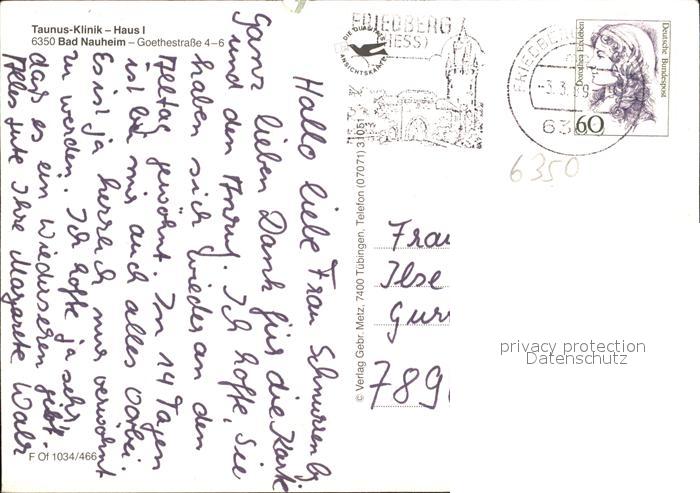 Taunus-Klinik – Haus I
6350 Bad Nauheim – Goethestraße 4–6
Hallo liebe Frau
Ganz lieben Dank für die Karte
und den Anruf. Ich hoffe, Sie
haben sich wieder an den
Alltag gewöhnt. In 14 Tagen
ist bei mir auch alles vorbei.
Es ist ja herrlich nur verwöhnt
zu werden. Ich hoffe ja sehr,
daß es ein Wiedersehen gibt.
Alles Gute Ihre Margarete
F Of 1034/466
© Verlag Gebr. Metz, 7400 Tübingen, Telefon (07071) 31051
DIE QUALITÄTS
ANSICHTSKARTE
FRIEDBERG
(HESS)
FRIEDBERG
-3.3.89
63
Deutsche Bundespost
Dorothea Erxleben
60
6350
Frau
Ilse
789
privacy protection
Datenschutz